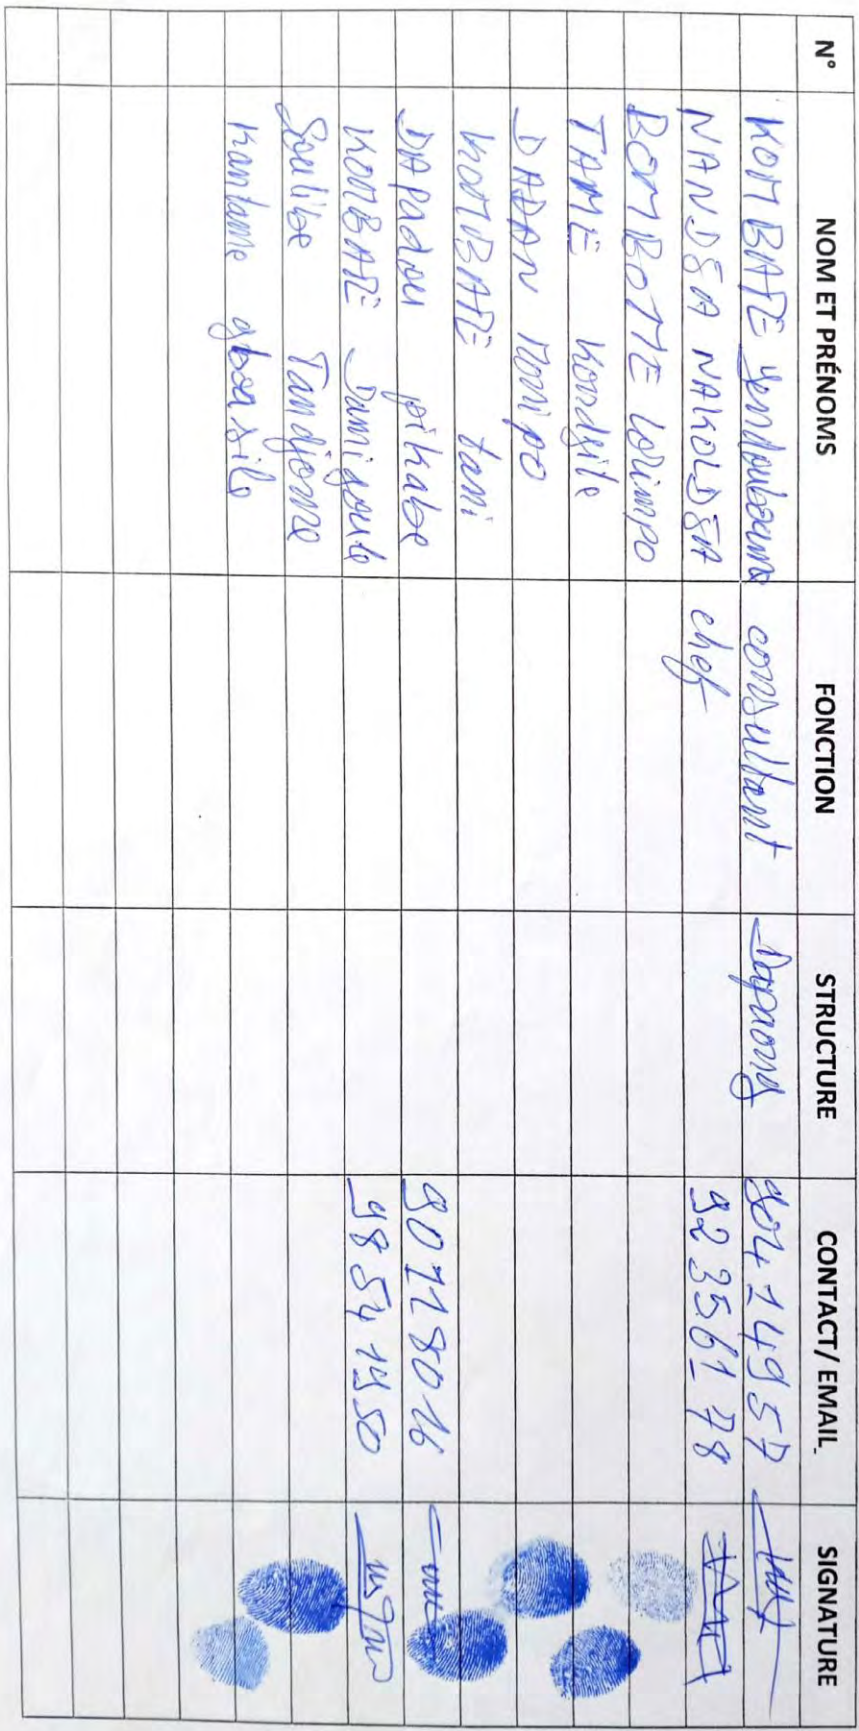 N° NOM ET PRÉNOMS FONCTION STRUCTURE CONTACT/ EMAIL SIGNATURE
KOMBATE consultant Dapaong
NANDJA NAKOLDJA chef 92 35 61 78
BOMBOTTE Lorimpo
TAME Kondjite
DADAN Monipo
KOMBATE tami
DAPADOU pikabe 90118016
KOMBATE Damigoule 98 54 19 50
Soulibe Tandjome
Kantame gbandile